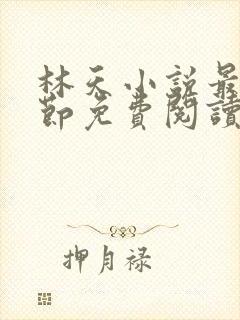 林天小説最
節免費閱讀
押月禄